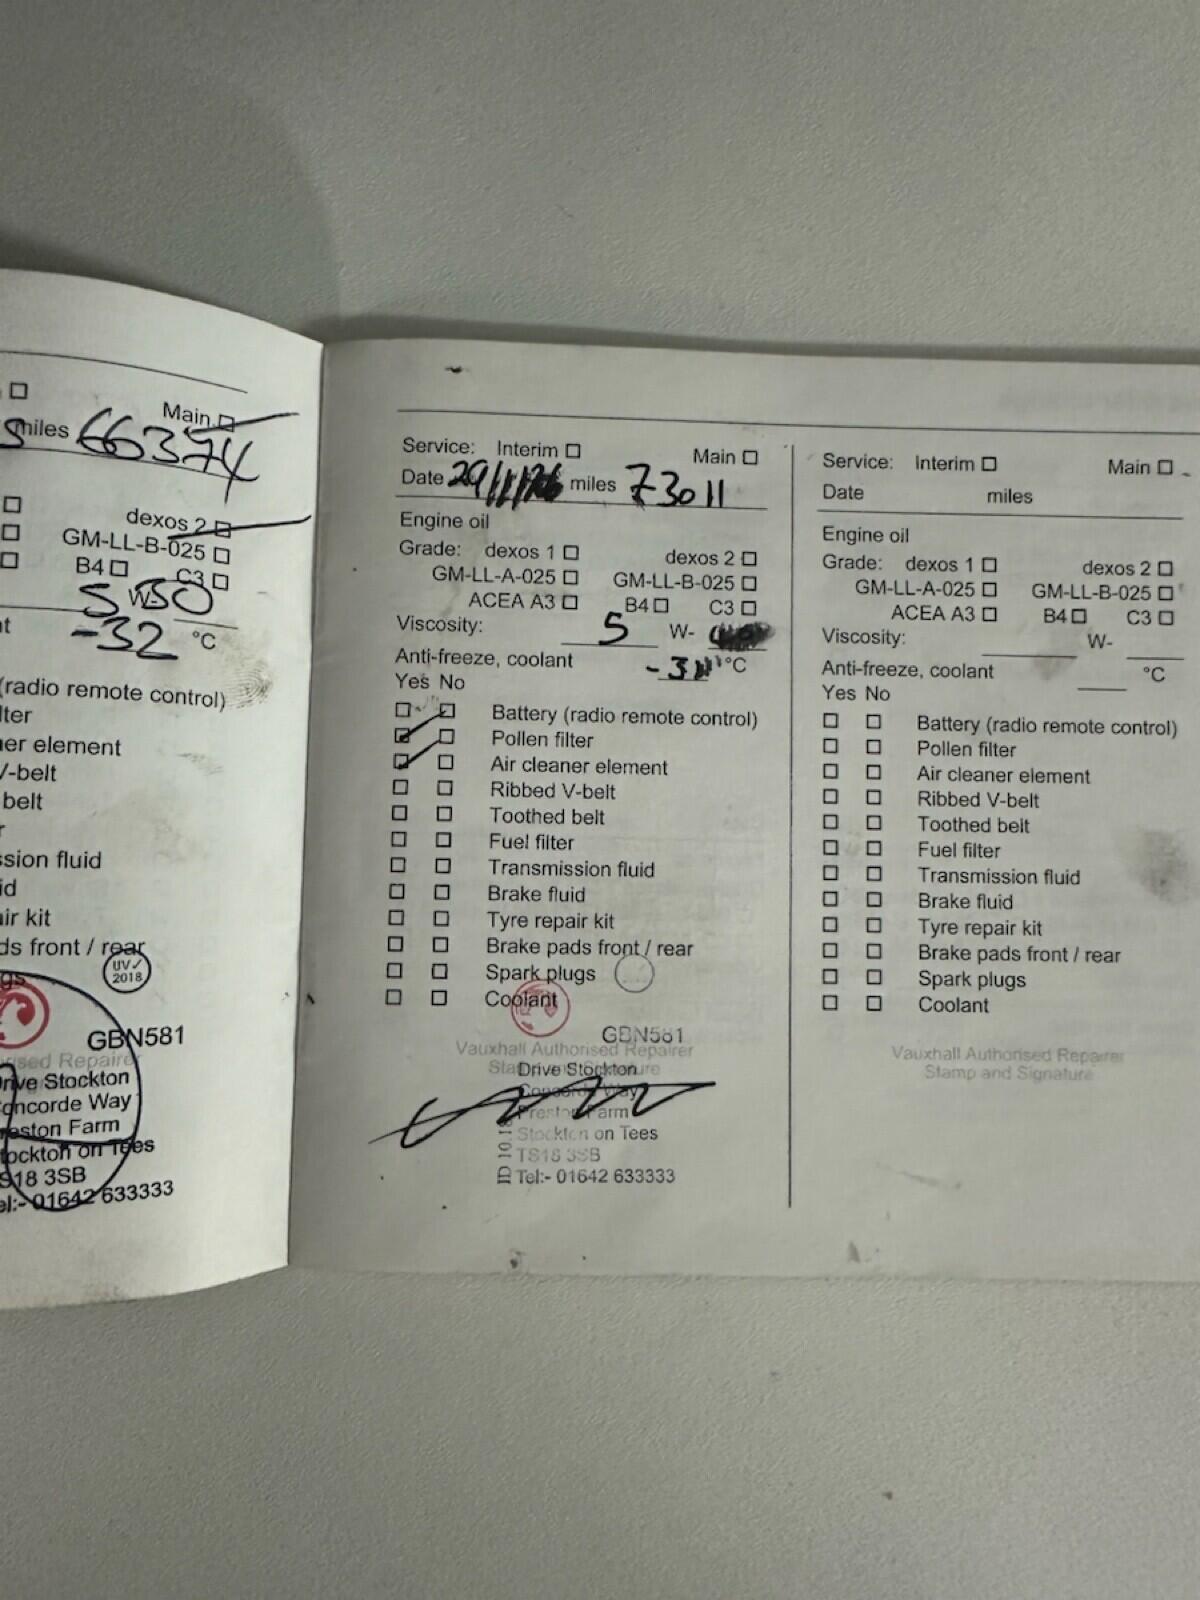 Main
miles 66374
dexos 2
GM-LL-B-025
B4 C3
5 W-30
-32 °C
(radio remote control)
er element
V-belt
belt
ds front / rear
UV✓
2018
GBN581
Drive Stockton
Concorde Way
Preston Farm
Stockton on Tees
TS18 3SB
Tel:- 01642 633333
Service: Interim Main
Date miles 73011
Engine oil
Grade: dexos 1 dexos 2
GM-LL-A-025 GM-LL-B-025
ACEA A3 B4 C3
Viscosity: 5 W-
Anti-freeze, coolant °C
Yes No
Battery (radio remote control)
Pollen filter
Air cleaner element
Ribbed V-belt
Toothed belt
Fuel filter
Transmission fluid
Brake fluid
Tyre repair kit
Brake pads front / rear
Spark plugs
Coolant
GBN581
Vauxhall Authorised Repairer
Stamp and Signature
Drive Stockton
Concorde Way
Preston Farm
Stockton on Tees
TS18 3SB
Tel:- 01642 633333
Service: Interim Main
Date miles
Engine oil
Grade: dexos 1 dexos 2
GM-LL-A-025 GM-LL-B-025
ACEA A3 B4 C3
Viscosity: W-
Anti-freeze, coolant °C
Yes No
Battery (radio remote control)
Pollen filter
Air cleaner element
Ribbed V-belt
Toothed belt
Fuel filter
Transmission fluid
Brake fluid
Tyre repair kit
Brake pads front / rear
Spark plugs
Coolant
Vauxhall Authorised Repairer
Stamp and Signature